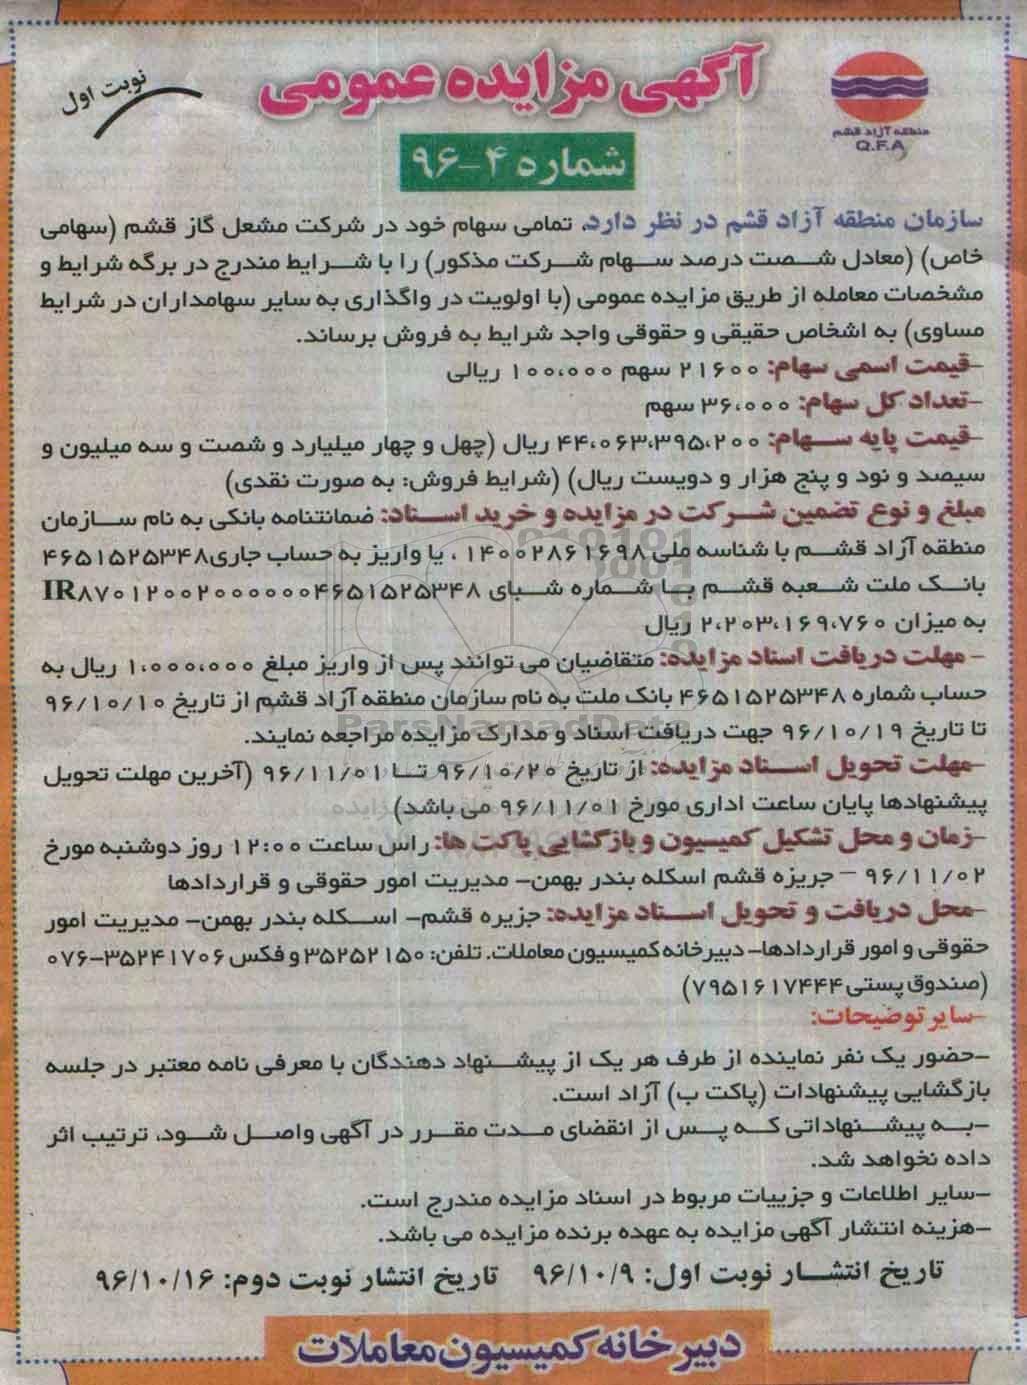 آگهی مزایده عمومی
نوبت اول
منطقه آزاد قشم
Q.F.A
شماره ۴-۹۶
سازمان منطقه آزاد قشم در نظر دارد، تمامی سهام خود در شرکت مشعل گاز قشم (سهامی
خاص) (معادل شصت درصد سهام شرکت مذکور) را با شرایط مندرج در برگه شرایط و
مشخصات معامله از طریق مزایده عمومی (با اولویت در واگذاری به سایر سهامداران در شرایط
مساوی) به اشخاص حقیقی و حقوقی واجد شرایط به فروش برساند.
-قیمت اسمی سهام: ۲۱۶۰۰ سهم ۱۰۰،۰۰۰ ریالی
-تعداد کل سهام: ۳۶،۰۰۰ سهم
-قیمت پایه سهام: ۴۴،۰۶۳،۳۹۵،۲۰۰ ریال (چهل و چهار میلیارد و شصت و سه میلیون و
سیصد و نود و پنج هزار و دویست ریال) (شرایط فروش: به صورت نقدی)
مبلغ و نوع تضمین شرکت در مزایده و خرید اسناد: ضمانتنامه بانکی به نام سازمان
منطقه آزاد قشم با شناسه ملی ۱۴۰۰۲۸۶۱۶۹۸ ، یا واریز به حساب جاری۴۶۵۱۵۲۵۳۴۸
بانک ملت شعبه قشم با شماره شبای IR۸۷۰۱۲۰۰۲۰۰۰۰۰۰۴۶۵۱۵۲۵۳۴۸
به میزان ۲،۲۰۳،۱۶۹،۷۶۰ ریال
- مهلت دریافت اسناد مزایده: متقاضیان می توانند پس از واریز مبلغ ۱،۰۰۰،۰۰۰ ریال به
حساب شماره ۴۶۵۱۵۲۵۳۴۸ بانک ملت به نام سازمان منطقه آزاد قشم از تاریخ ۹۶/۱۰/۱۰
تا تاریخ ۹۶/۱۰/۱۹ جهت دریافت اسناد و مدارک مزایده مراجعه نمایند.
ParsNamadData
-مهلت تحویل اسناد مزایده: از تاریخ ۹۶/۱۰/۲۰ تا ۹۶/۱۱/۰۱ (آخرین مهلت تحویل
پیشنهادها پایان ساعت اداری مورخ ۹۶/۱۱/۰۱ می باشد)
-زمان و محل تشکیل کمیسیون و بازگشایی پاکت ها: راس ساعت ۱۲:۰۰ روز دوشنبه مورخ
۹۶/۱۱/۰۲ – جریزه قشم اسکله بندر بهمن- مدیریت امور حقوقی و قراردادها
-محل دریافت و تحویل اسناد مزایده: جزیره قشم- اسکله بندر بهمن- مدیریت امور
حقوقی و امور قراردادها- دبیرخانه کمیسیون معاملات. تلفن: ۳۵۲۵۲۱۵۰ و فکس ۳۵۲۴۱۷۰۶-۰۷۶
(صندوق پستی ۷۹۵۱۶۱۷۴۴۴)
-سایر توضیحات:
-حضور یک نفر نماینده از طرف هر یک از پیشنهاد دهندگان با معرفی نامه معتبر در جلسه
بازگشایی پیشنهادات (پاکت ب) آزاد است.
-به پیشنهاداتی که پس از انقضای مدت مقرر در آگهی واصل شود، ترتیب اثر
داده نخواهد شد.
-سایر اطلاعات و جزییات مربوط در اسناد مزایده مندرج است.
-هزینه انتشار آگهی مزایده به عهده برنده مزایده می باشد.
تاریخ انتشار نوبت اول: ۹۶/۱۰/۹ تاریخ انتشار نوبت دوم: ۹۶/۱۰/۱۶
دبیرخانه کمیسیون معاملات